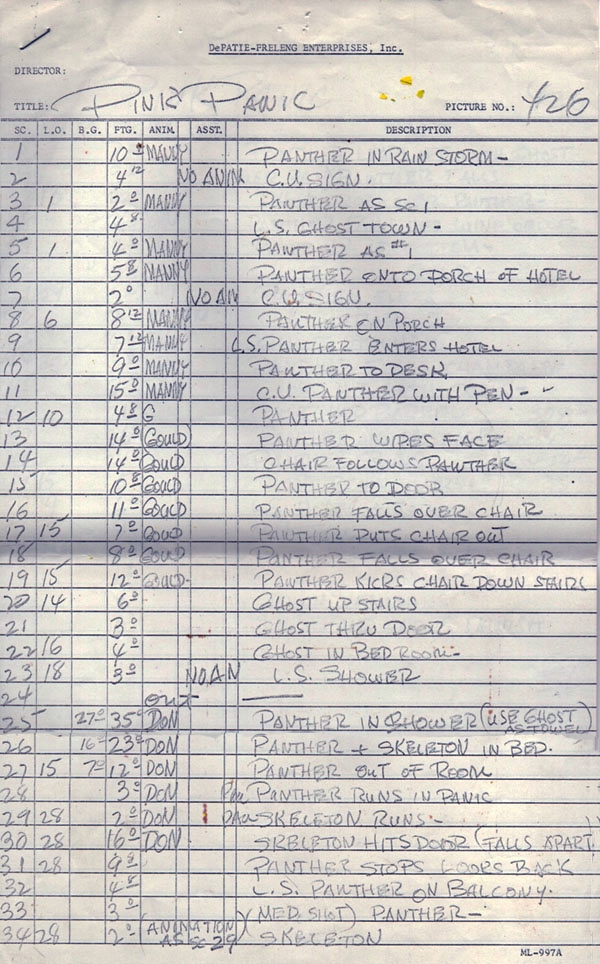 DePATIE-FRELENG ENTERPRISES, Inc.
DIRECTOR:
TITLE: PINK PANIC PICTURE NO.: 426
SC. L.O. B.G. FTG. ANIM. ASST. DESCRIPTION
1 10 0 MANNY PANTHER IN RAIN STORM -
2 4 12 NO ANIM C.U. SIGN.
3 1 2 0 MANNY PANTHER AS SC 1
4 4 8 L.S. GHOST TOWN -
5 1 4 0 MANNY PANTHER AS #1
6 5 8 MANNY PANTHER ONTO PORCH OF HOTEL
7 2 0 NO AN C.U. SIGN.
8 6 8 12 MANNY PANTHER ON PORCH
9 7 12 MANNY L.S. PANTHER ENTERS HOTEL
10 9 0 MANNY PANTHER TO DESK
11 15 0 MANNY C.U. PANTHER WITH PEN -
12 10 4 8 G PANTHER
13 14 0 GOULD PANTHER WIPES FACE
14 14 0 GOULD CHAIR FOLLOWS PANTHER
15 10 8 GOULD PANTHER TO DOOR
16 11 0 GOULD PANTHER FALLS OVER CHAIR
17 15 7 0 GOULD PANTHER PUTS CHAIR OUT
18 8 0 GOULD PANTHER FALLS OVER CHAIR
19 15 12 0 GOULD PANTHER KICKS CHAIR DOWN STAIRS
20 14 6 0 GHOST UP STAIRS
21 3 0 GHOST THRU DOOR
22 16 4 0 GHOST IN BEDROOM -
23 18 3 0 NO AN L.S. SHOWER
24 OUT
25 27 0 35 0 DON PANTHER IN SHOWER (USE GHOST AS TOWEL
26 16 0 23 0 DON PANTHER + SKELETON IN BED.
27 15 7 0 12 0 DON PANTHER OUT OF ROOM
28 3 0 DON PAN PANTHER RUNS IN PANIC
29 28 2 0 DON PAN SKELETON RUNS -
30 28 16 0 DON SKELETON HITS DOOR (FALLS APART)
31 28 9 8 PANTHER STOPS LOOKS BACK
32 4 8 L.S. PANTHER ON BALCONY.
33 3 0 (MED. SHOT) PANTHER -
34 28 2 0 (ANIMATION AS SC 29) SKELETON
ML-997A